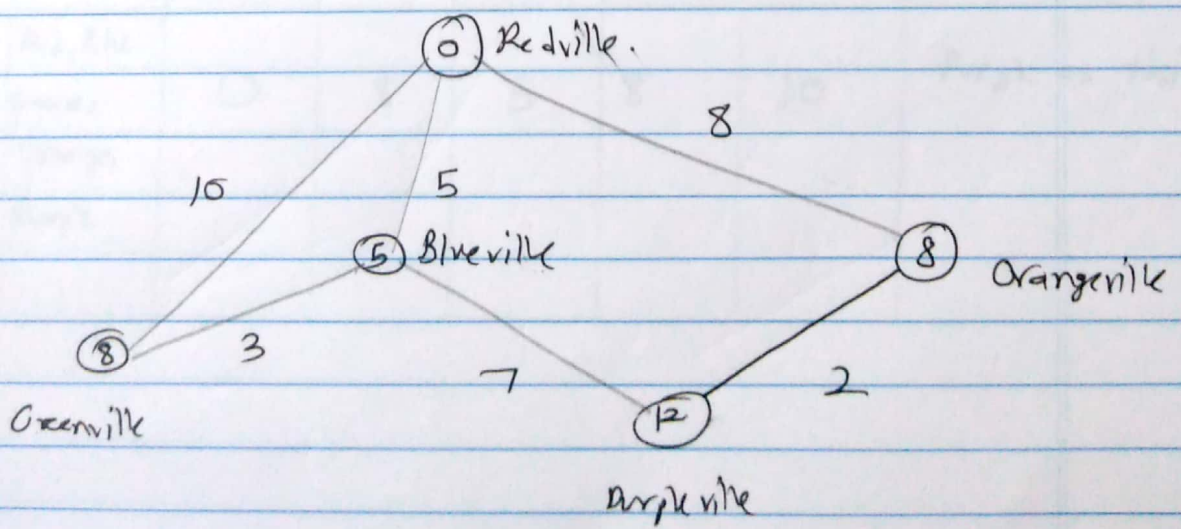 0 Redville.
8
10
5
5 Blueville
8
Orangeville
8
3
7
2
Greenville
12
Purpleville